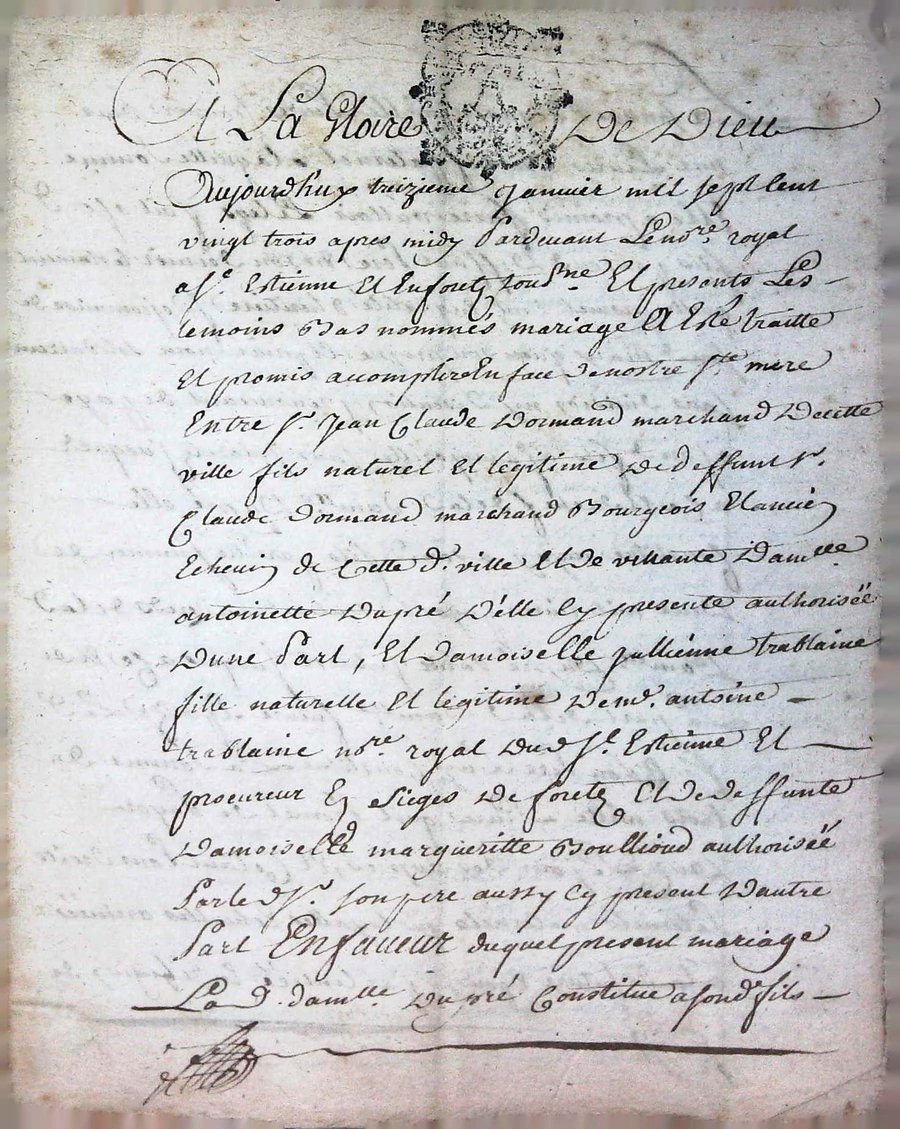 A La Gloire De Dieu
Aujourdhuy treizieme Janvier mil sept Cent
vingt trois apres midy Pardevant Le no.re royal
a S.t Estienne Et En foretz sous.ne Et presents Les
temoins Bas nommés mariage A Esté traitté
Et promis accomplir En face de nostre S.te mere
Entre S.r Jean Claude Dormand marchand De cette
ville fils naturel Et legitime De deffunt S.r
Claude Dormand marchand Bourgeois Et ancien
Echevin de Cette d. ville Et De vivante Dam.lle
antoinette Dupré D'elle Cy presente authorisée
D'une Part, Et Damoiselle Jullienne trablaine
fille naturelle Et legitime De m.e antoine
trablaine no.re royal Du d. S.t Estienne Et
procureur Es Sieges De foretz Et De deffunte
Damoiselle margueritte Boullioud authorisée
Par le d. S.r son pere aussy Cy present D'autre
Part En faveur duquel present mariage
La d. dam.lle Dupré Constitue a son d. fils